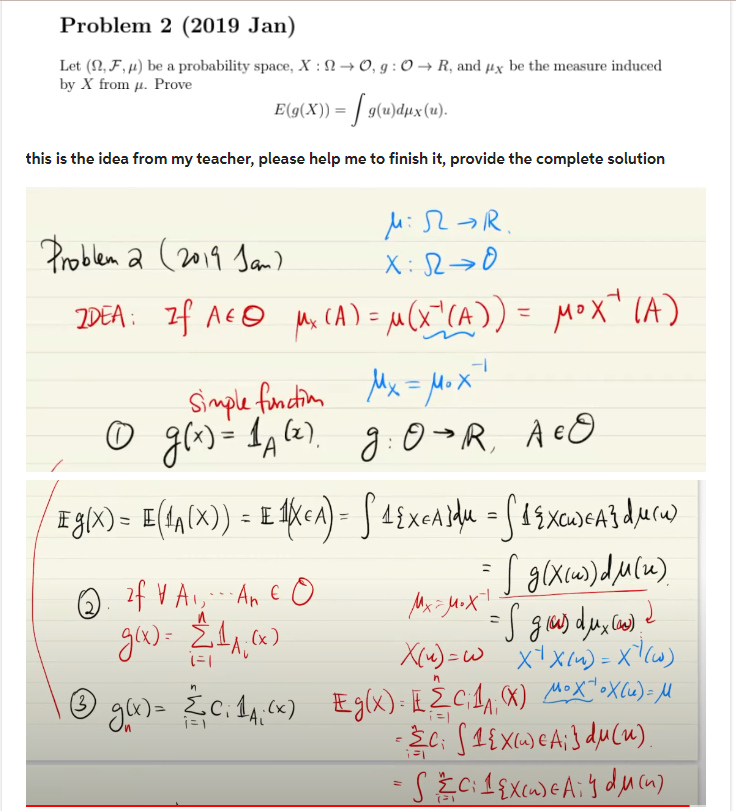 Problem 2 (2019 Jan)
Let (Ω, F, μ) be a probability space, X : Ω → O, g : O → R, and μX be the measure induced
by X from μ. Prove
E(g(X)) = ∫ g(u)dμX(u).
this is the idea from my teacher, please help me to finish it, provide the complete solution
μ: Ω → R.
Problem 2 (2019 Jan)
X: Ω → O
IDEA: If A ∈ O μx (A) = μ(X⁻¹(A)) = μ∘X⁻¹ (A)
simple function μx = μ∘X⁻¹
① g(x) = 1_A (x). g: O → R, A ∈ O
E g(X) = E(1_A(X)) = E 1(X∈A) = ∫ 1{X∈A}dμ = ∫ 1{X(u)∈A} dμ(u)
= ∫ g(X(u)) dμ(u)
② If ∀ A₁, ... An ∈ O
μx = μ∘X⁻¹ = ∫ g(ω) dμx(ω)
g(x) = Σ_{i=1}^n 1_{A_i}(x)
X(u) = ω X⁻¹X(u) = X⁻¹(ω)
μ∘X⁻¹∘X(u) = μ
③ g_n(x) = Σ_{i=1}^n c_i 1_{A_i}(x) E g(X) = E Σ_{i=1}^n c_i 1_{A_i}(X)
= Σ_{i=1}^n c_i ∫ 1{X(u)∈A_i} dμ(u)
= ∫ Σ_{i=1}^n c_i 1{X(u)∈A_i} dμ(u)